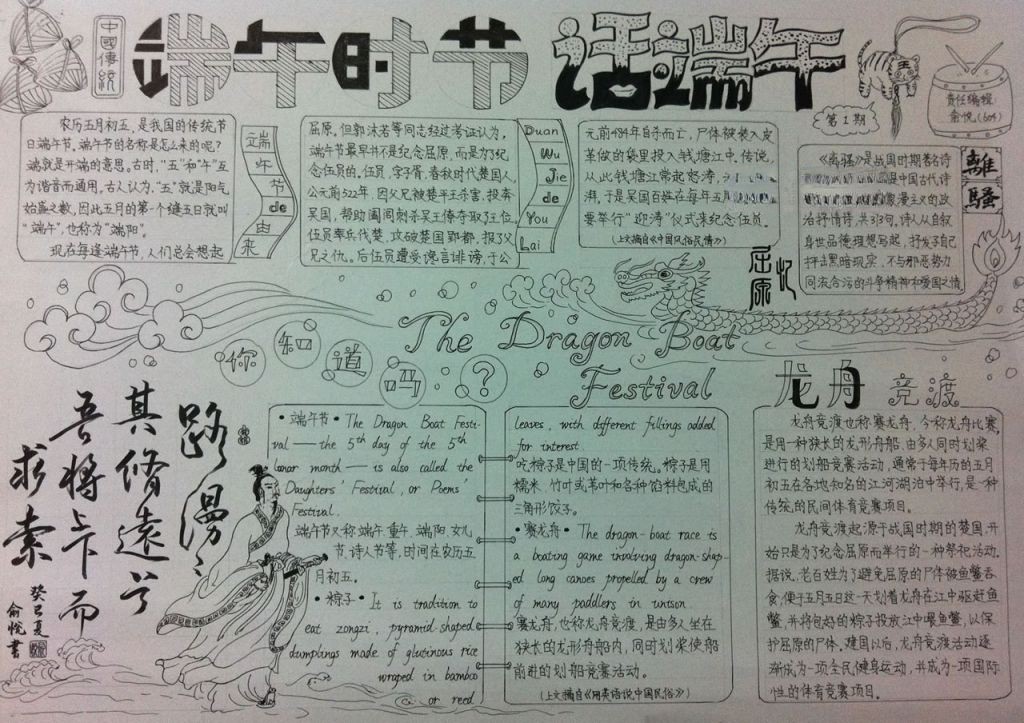 中國傳統
端午时节 话端午
第1期
责任编辑
俞悦(604)
农历五月初五,是我国的传统节
日端午节,端午节的名称是怎么来的呢?
端就是开端的意思。古时,“五”和“午”互
为谐音而通用,古人认为,“五”就是阳气
始盛之数,因此五月的第一个逢五日就叫
“端午”,也称为“端阳”。
现在每逢端午节,人们总会想起
端
午
节
de
由
来
屈原。但郭沫若等同志经过考证认为,
端午节最早并不是纪念屈原,而是为了纪
念伍员的。伍员,字子胥,春秋时代楚国人。
公元前522年,因父兄被楚平王杀害,投奔
吴国,帮助阖闾刺杀吴王僚夺取了王位。
伍员率兵代楚,攻破楚国郢都,报了父
兄之仇。后伍员遭受谗言诽谤,于公
Duan
Wu
Jie
de
You
Lai
元前484年自杀而亡,尸体被装入皮
革做的袋里投入钱塘江中。传说,
从此钱塘江常起怒涛,
湃,于是吴国百姓在每年五月
要举行“迎涛”仪式来纪念伍员。
(上文摘自《中国风俗民情》)
《离骚》是战国时期著名诗
是中国古代诗
浪漫主义的政
治抒情诗,共373句,诗人从自叙
身世品德理想写起,抒发了自己
抨击黑暗现实,不与邪恶势力
同流合污的斗争精神和爱国之情
離騷
忆屈原
The Dragon Boat
Festival
你知道吗?
路漫漫
其修遠兮
吾将上下而
求索
癸巳夏
俞悦書
• 端午节 • The Dragon Boat Festi-
val — the 5th day of the 5th
lunar month — is also called the
Daughters' Festival, or Poems'
Festival.
端午节又称端午、重午、端阳、女儿
节、诗人节等,时间在农历五
月初五。
• 粽子 • It is tradition to
eat zongzi, pyramid-shaped
dumplings made of glutinous rice
wraped in bamboo
or reed
leaves, with different fillings added
for interest.
吃粽子是中国的一项传统。粽子是用
糯米、竹叶或苇叶和各种馅料包成的
三角形饺子。
• 赛龙舟 • The dragon-boat race is
a boating game involving dragon-shap-
ed long canoes propelled by a crew
of many paddlers in unison.
赛龙舟,也称龙舟竞渡,是由多人坐在
狭长的龙形舟船内,同时划桨使船
前进的划船竞赛活动。
(上文摘自《用英语说中国民俗》)
龙舟竞渡
龙舟竞渡也称赛龙舟,今称龙舟比赛,
是用一种狭长的龙形舟船,由多人同时划桨
进行的划船竞赛活动,通常于每年历的五月
初五在各地知名的江河湖泊中举行,是一种
传统的民间体育竞赛项目。
龙舟竞渡起源于战国时期的楚国,开
始只是为了纪念屈原而举行的一种祭祀活动。
据说,老百姓为了避免屈原的尸体被鱼蟹吞
食,便于五月五日这一天划着龙舟在江中驱赶鱼
蟹,并将包好的粽子投放江中喂鱼蟹,以保
护屈原的尸体。建国以后,龙舟竞渡活动逐
渐成为一项全民健身运动,并成为一项国际
性的体育竞赛项目。